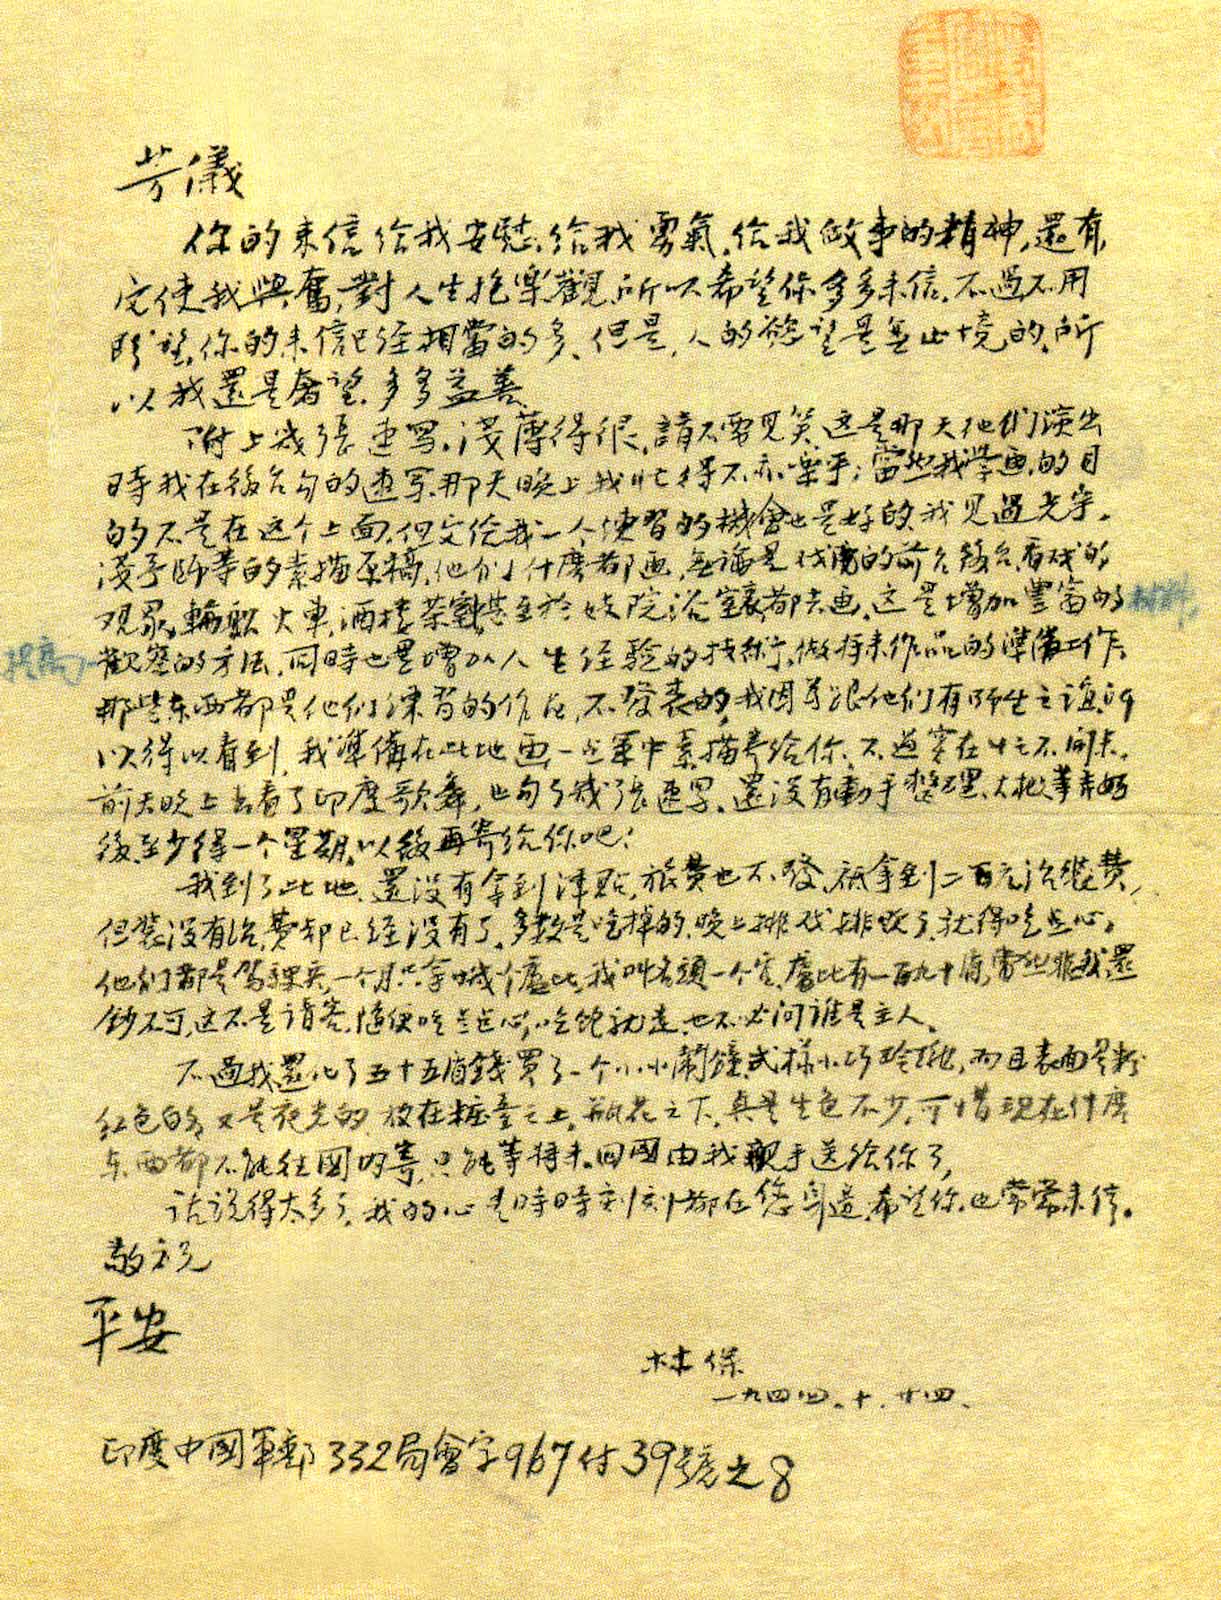 芳儀
你的来信给我安慰，给我勇氣，给我做事的精神，還有，
它使我興奮，對人生抱樂觀，所以希望你多多来信，不過不用
盼望，你的来信已经相當的多，但是，人的慾望是無止境的，所
以我還是奢望，多多益善。
附上幾張速写，淺薄得很，請不要见笑，这是那天他们演出
時我在後台勾的速写，那天晚上我忙得不亦樂乎；當然我学画的目
的不是在这个上面，但交给我一个练習的機會也是好的，我见過光宇，
淺予師等的素描原稿，他们什麽都画，無論是戏院的前台後台，看戏的
观衆，輪船火車，酒楼茶室，甚至於妓院浴室，都去画，这是增加豐富的材料，
提高觀察的方法，同時也是增加人生经验的技術，做将来作品的準備工作，
那些东西都是他们练習的作品，不發表的，我因为跟他们有師生之誼，所
以得以看到，我準備在此地画一些軍中素描寄给你，不過实在忙不開来。
前天晚上去看了印度歌舞，也勾了幾張速写，還没有動手整理，大概筆弄好
後至少得一个星期，以後再寄给你吧！
我到了此地，還没有拿到津贴，旅费也不發，祗拿到二百元治装费，
但装没有治，费却已经没有了，多数是吃掉的，晚上排戏排晚了，就得吃点心，
他们都是驾驶兵，一个月只拿幾个盧比，我叫名頭一个官，盧比有一百九十盾，當然非我還
鈔不可，这不是请客，随便吃些点心，吃饱就走，也不必问谁是主人。
不過我還化了五十五盾錢買了一个小小鬧鐘，式樣小巧玲瓏，而且表面是粉
红色的，又是夜光的，放在粧臺之上，瓶花之下，真是生色不少，可惜现在什麽
东西都不能往國内寄，只能等将来回國由我親手送给你了，
话说得太多了，我的心是時時刻刻都在您身邊，希望你也常常来信。
敬祝
平安
林保
一九四四．十．廿四．
印度中國軍郵332局會字967付39號之8